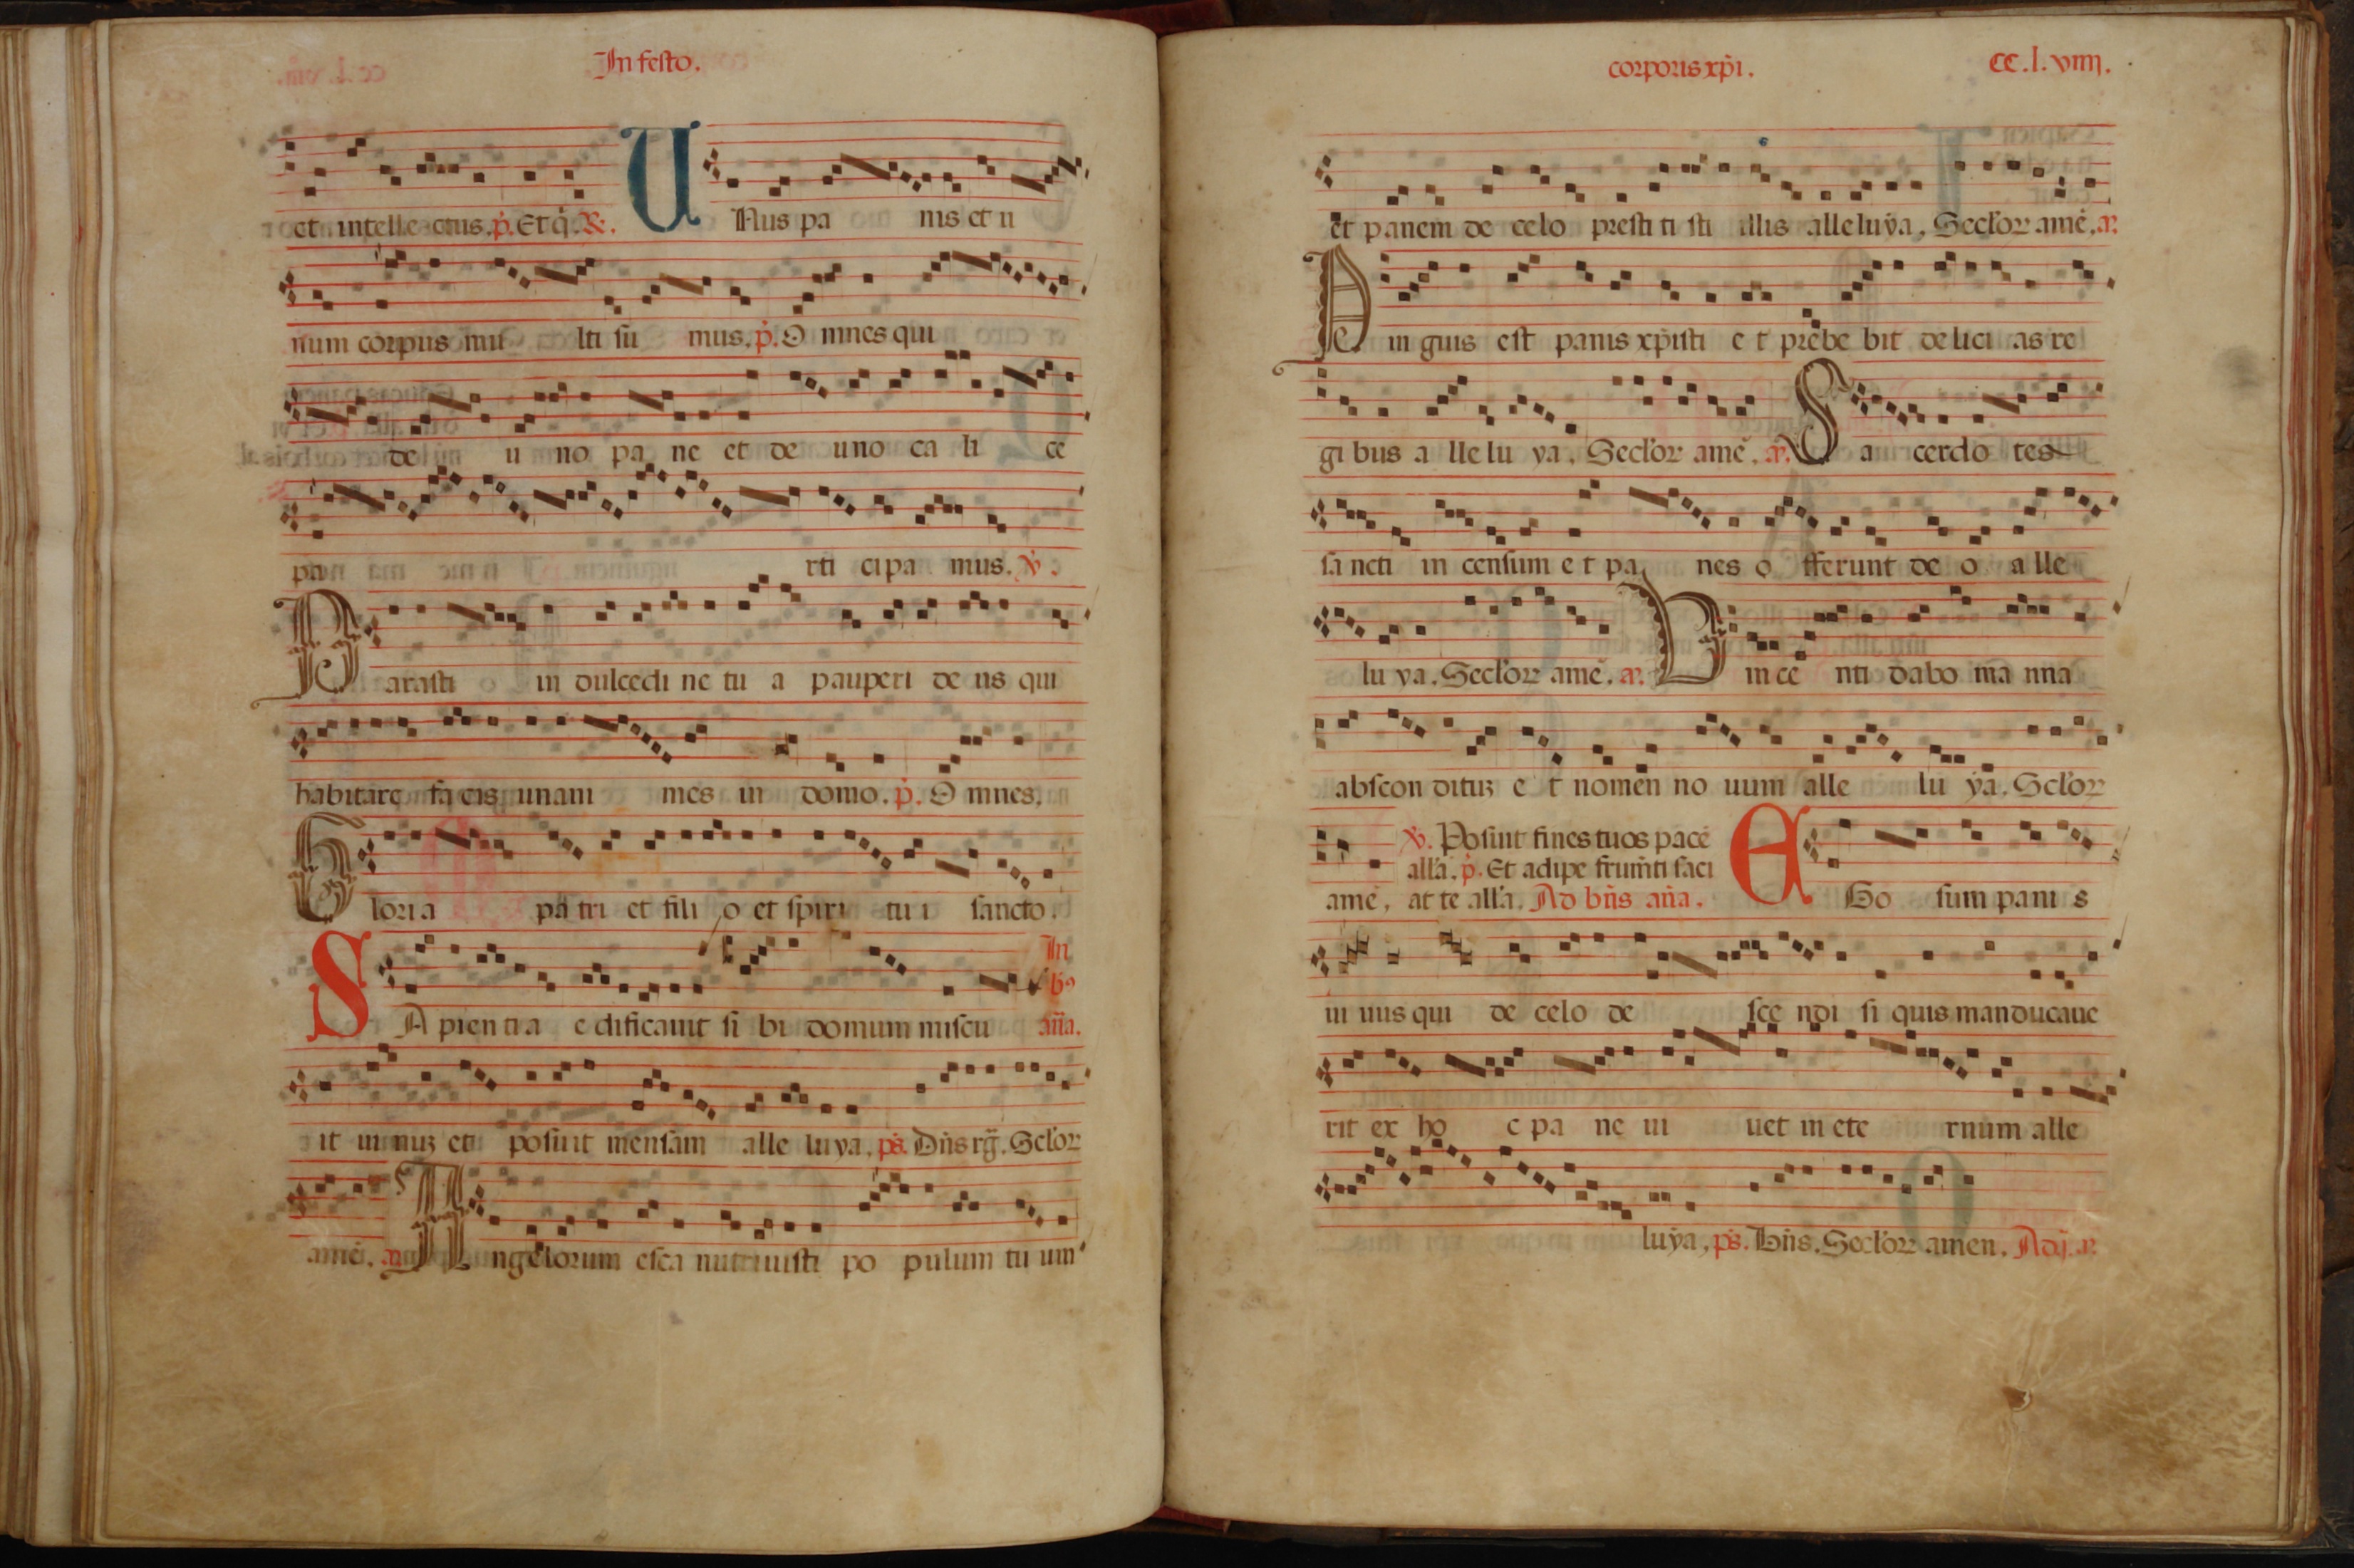 In festo.
et intelle ctus. p̃. Et q̃. R.
U Nus pa nis et u
num corpus mu lti su mus. p̃. O mnes qui
de u no pa ne et de uno ca li ce
pa rti cipa mus. ṽ.
Parasti in dulcedi ne tu a pauperi de us qui
habitare fa cis unani mes in domo. p̃. O mnes.
Gloria pa tri et fili o et spiri tu i sancto.
In
b᷒
SApientia e dificauit si bi domum miscu añа.
it uinuʒ et posuit mensam alle luya. ps̃. Dñs rg̃. Sclor
amē. añ Angelorum esca nutriuisti po pulum tu um
corporis xp̃i. CC.l.viiij.
et panem de celo presti ti sti illis alleluẏa. Seclor amē. añ.
Pin guis est panis xp̃isti e t prebe bit de lici as re
gi bus a lle lu ya. Seclor amē. añ. Sa cerdo tes
sa ncti in censum e t pa nes o fferunt de o a lle
lu ya. Seclor amē. añ. Uin ce nti dabo ma nna
abscon dituʒ e t nomen no uum alle lu ẏa. Sclor
ṽ. Posuit fines tuos pacē
allã. p̃. Et adipe frumēti saci
amē, at te allã. Ad bñs añа. EGo sum pani s
ui uus qui de celo de sce ndi si quis manducaue
rit ex ho c pa ne ui uet in ete rnum alle
luẏa, ps̃. Bñs. Seclor amen. Ad